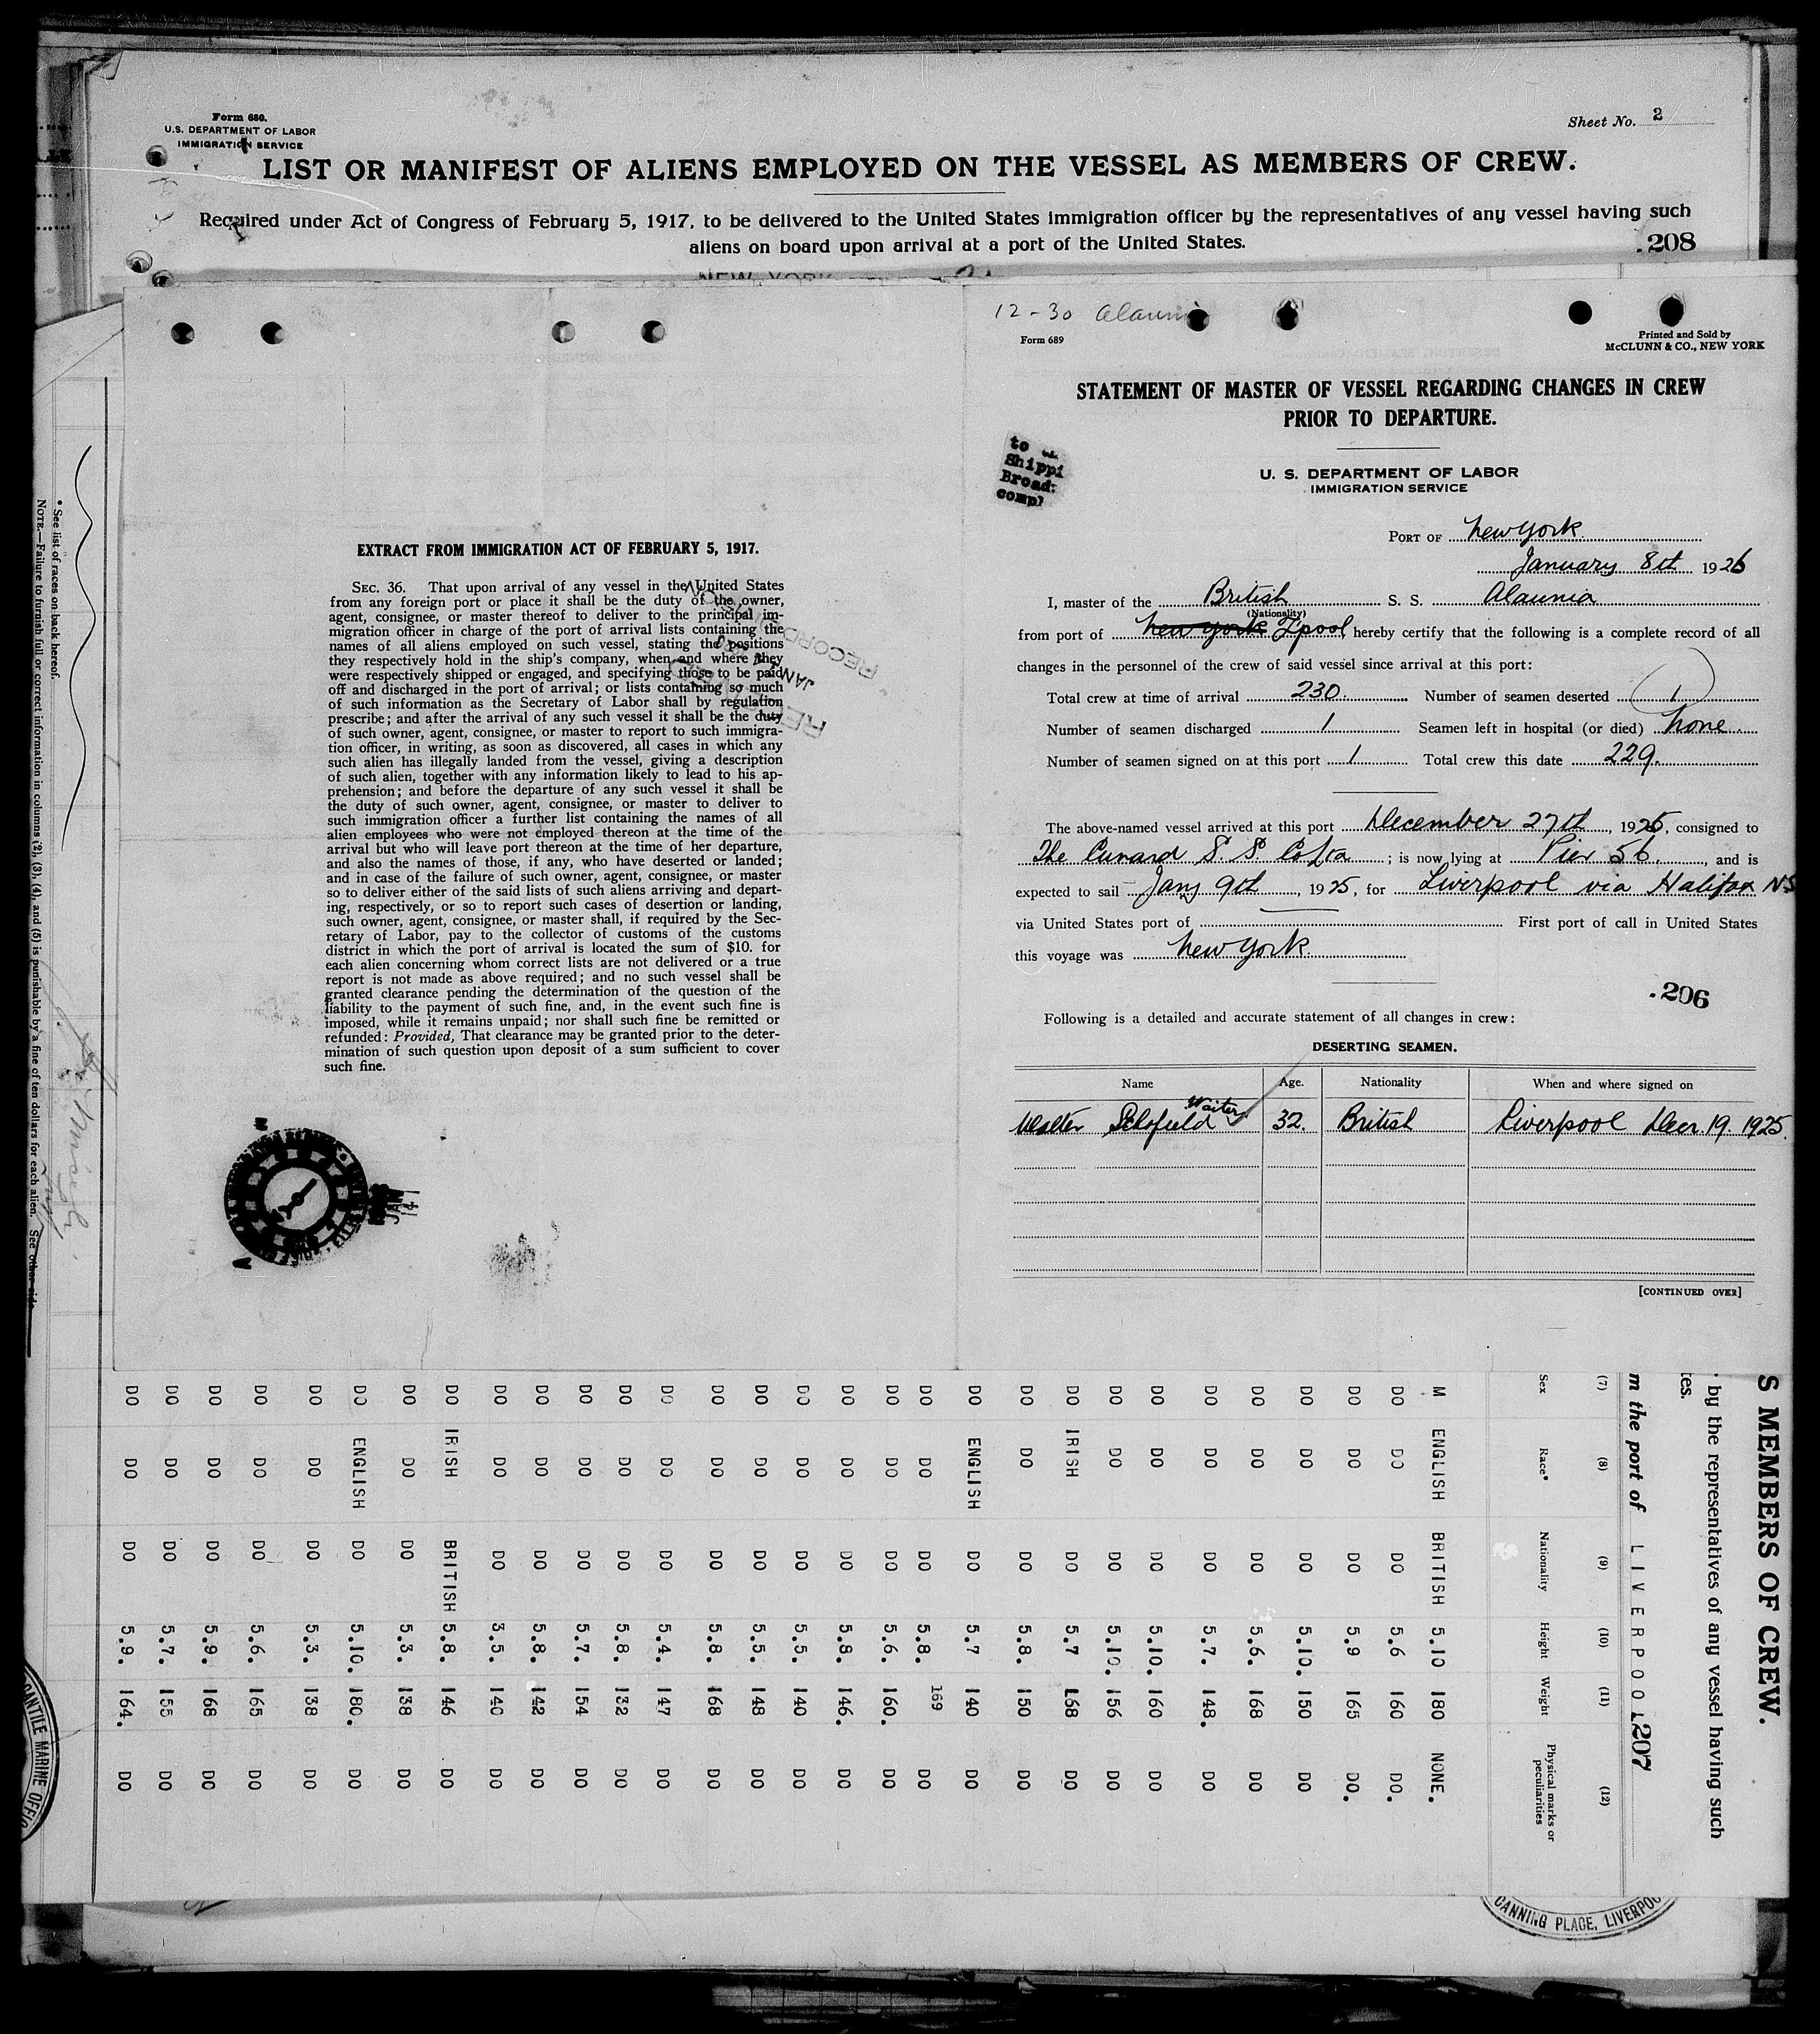 Form 680.
U.S. DEPARTMENT OF LABOR
IMMIGRATION SERVICE
Sheet No. 2
LIST OR MANIFEST OF ALIENS EMPLOYED ON THE VESSEL AS MEMBERS OF CREW.
Required under Act of Congress of February 5, 1917, to be delivered to the United States immigration officer by the representatives of any vessel having such
aliens on board upon arrival at a port of the United States.
.208
EXTRACT FROM IMMIGRATION ACT OF FEBRUARY 5, 1917.
SEC. 36. That upon arrival of any vessel in the United States
from any foreign port or place it shall be the duty of the owner,
agent, consignee, or master thereof to deliver to the principal im-
migration officer in charge of the port of arrival lists containing the
names of all aliens employed on such vessel, stating the positions
they respectively hold in the ship's company, when and where they
were respectively shipped or engaged, and specifying those to be paid
off and discharged in the port of arrival; or lists containing so much
of such information as the Secretary of Labor shall by regulation
prescribe; and after the arrival of any such vessel it shall be the duty
of such owner, agent, consignee, or master to report to such immigra-
tion officer, in writing, as soon as discovered, all cases in which any
such alien has illegally landed from the vessel, giving a description
of such alien, together with any information likely to lead to his ap-
prehension; and before the departure of any such vessel it shall be
the duty of such owner, agent, consignee, or master to deliver to
such immigration officer a further list containing the names of all
alien employees who were not employed thereon at the time of the
arrival but who will leave port thereon at the time of her departure,
and also the names of those, if any, who have deserted or landed;
and in case of the failure of such owner, agent, consignee, or master
so to deliver either of the said lists of such aliens arriving and depart-
ing, respectively, or so to report such cases of desertion or landing,
such owner, agent, consignee, or master shall, if required by the Sec-
retary of Labor, pay to the collector of customs of the customs
district in which the port of arrival is located the sum of $10. for
each alien concerning whom correct lists are not delivered or a true
report is not made as above required; and no such vessel shall be
granted clearance pending the determination of the question of the
liability to the payment of such fine, and, in the event such fine is
imposed, while it remains unpaid; nor shall such fine be remitted or
refunded: Provided, That clearance may be granted prior to the deter-
mination of such question upon deposit of a sum sufficient to cover
such fine.
12-30 Alaunia
Form 689
Printed and Sold by
McCLUNN & CO., NEW YORK
STATEMENT OF MASTER OF VESSEL REGARDING CHANGES IN CREW
PRIOR TO DEPARTURE.
to
Shippi
Broad:
compl
U. S. DEPARTMENT OF LABOR
IMMIGRATION SERVICE
PORT OF New York
January 8th 1926
I, master of the British S. S. Alaunia
(Nationality)
from port of New York L'pool hereby certify that the following is a complete record of all
changes in the personnel of the crew of said vessel since arrival at this port:
Total crew at time of arrival 230. Number of seamen deserted 1
Number of seamen discharged 1 Seamen left in hospital (or died) None.
Number of seamen signed on at this port 1 Total crew this date 229.
The above-named vessel arrived at this port December 27th, 1925, consigned to
The Cunard S. S. Co Lta; is now lying at Pier 56., and is
expected to sail Jany 9th, 1925, for Liverpool via Halifax NS
via United States port of First port of call in United States
this voyage was New York.
.206
Following is a detailed and accurate statement of all changes in crew:
DESERTING SEAMEN.
Name Age. Nationality When and where signed on
Walter Schofield Waiter 32. British Liverpool Decr. 19. 1925.
[CONTINUED OVER]
S MEMBERS OF CREW.
by the representatives of any vessel having such
tes.
m the port of LIVERPOOL
207
(7) (8) (9) (10) (11) (12)
Sex Race* Nationality Height Weight Physical marks or peculiarities
M ENGLISH BRITISH 5.10 180 NONE.
DO DO DO 5.6 160 DO.
DO DO DO 5.9 165 DO.
DO DO DO 5.10. 150 DO
DO DO DO 5.6. 168 DO
DO DO DO 5.7. 148. DO
DO DO DO 5.10. 160 DO
DO DO DO 5.10. 156 DO
DO IRISH DO 5.7 168 DO
DO DO DO 5.8. 150 DO
DO ENGLISH DO 5.7 140 DO
DO DO DO 5.8. 169 DO
DO DO DO 5.6. 160. DO
DO DO DO 5.8. 146. DO
DO DO DO 5.5. 140 DO
DO DO DO 5.5. 148 DO
DO DO DO 5.8. 168 DO
DO DO DO 5.4. 147 DO
DO DO DO 5.8. 132 DO
DO DO DO 5.7. 154 DO
DO DO DO 5.8. 142 DO
DO DO DO 3.5. 140 DO
DO IRISH BRITISH 5.8. 146 DO
DO DO DO 5.3. 138 DO
DO ENGLISH DO 5.10. 180. DO
DO DO DO 5.3. 138 DO
DO DO DO 5.6. 165 DO
DO DO DO 5.9. 168 DO
DO DO DO 5.7. 155 DO
DO DO DO 5.9. 164. DO
* See list of races on back hereof.
NOTE.—Failure to furnish full or correct information in columns (2), (3), (4), and (5) is punishable by a fine of ten dollars for each alien. See other side
CANNING PLACE, LIVERPOOL
MARINE OFFIC